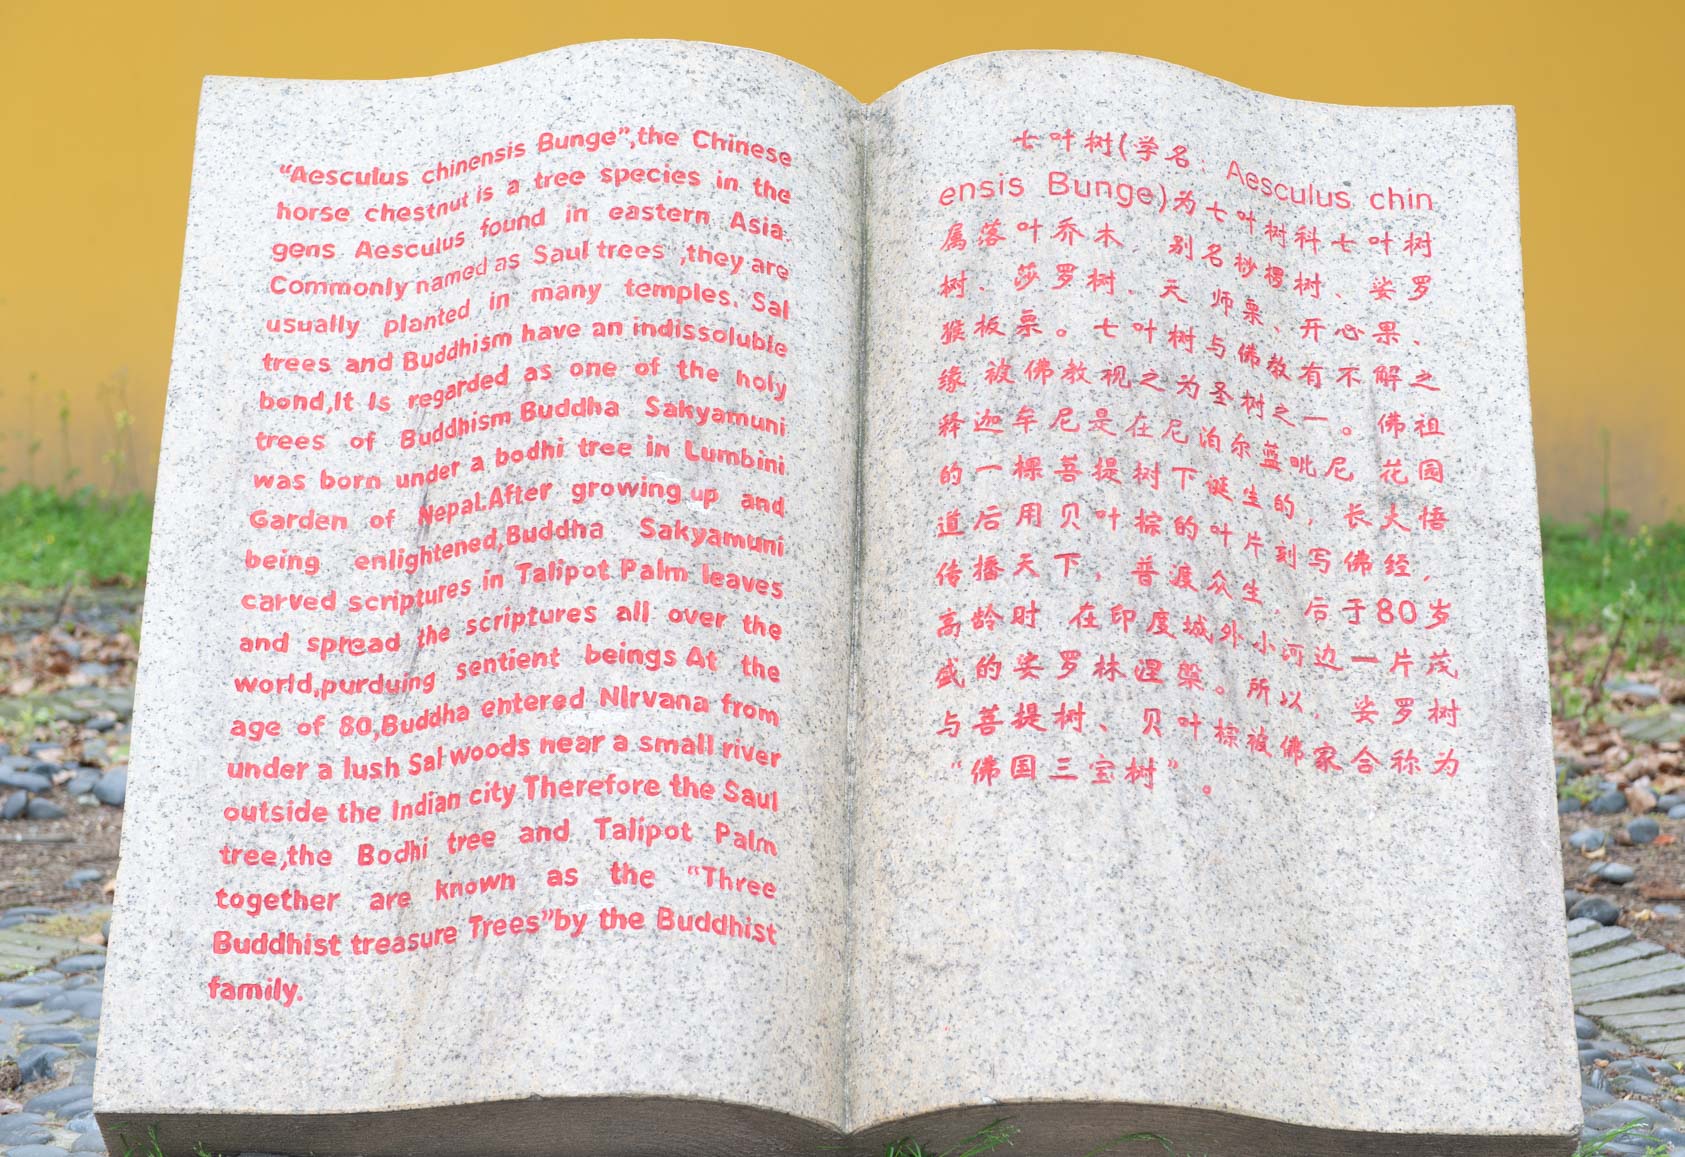 “Aesculus chinensis Bunge”,the Chinese
horse chestnut is a tree species in the
gens Aesculus found in eastern Asia.
Commonly named as Saul trees ,they are
usually planted in many temples. Sal
trees and Buddhism have an indissoluble
bond,It Is regarded as one of the holy
trees of Buddhism Buddha Sakyamuni
was born under a bodhi tree in Lumbini
Garden of Nepal.After growing up and
being enlightened,Buddha Sakyamuni
carved scriptures in Talipot Palm leaves
and spread the scriptures all over the
world,purduing sentient beings At the
age of 80,Buddha entered NIrvana from
under a lush Sal woods near a small river
outside the Indian city Therefore the Saul
tree,the Bodhi tree and Talipot Palm
together are known as the “Three
Buddhist treasure Trees”by the Buddhist
family.
七叶树(学名：Aesculus chin
ensis Bunge)为七叶树科七叶树
属落叶乔木 别名桫椤树、娑罗
树、莎罗树、天师栗、开心果、
猴板栗。七叶树与佛教有不解之
缘 被佛教视之为圣树之一。佛祖
释迦牟尼是在尼泊尔蓝吡尼 花园
的一棵菩提树下诞生的，长大悟
道后用贝叶棕的叶片刻写佛经，
传播天下，普渡众生，后于80岁
高龄时 在印度城外小河边一片茂
盛的娑罗林涅槃。所以，娑罗树
与菩提树、贝叶棕被佛家合称为
“佛国三宝树”。